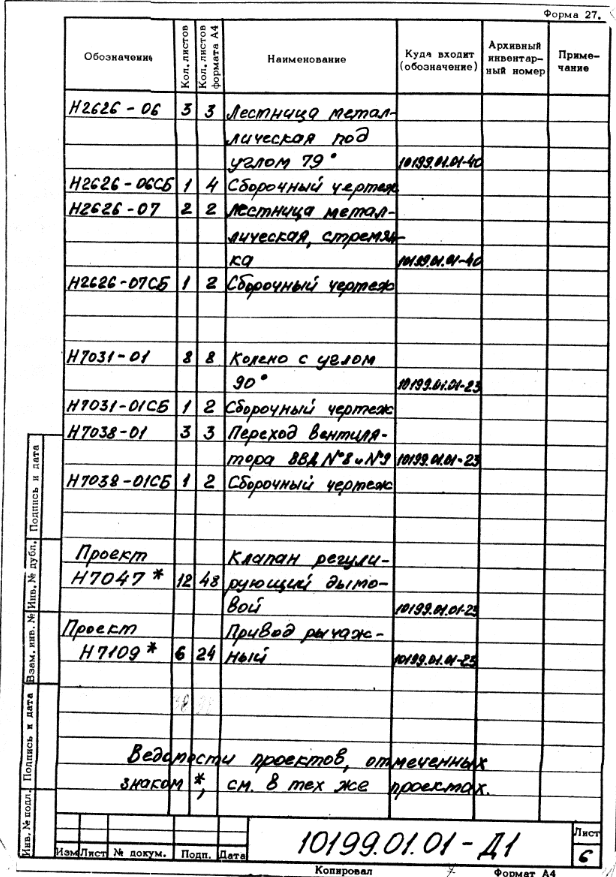 Форма 27.
Обозначение Кол. листов Кол. листов формата А4 Наименование Куда входит (обозначение) Архивный инвентарный номер Примечание
Н2626-06 3 3 Лестница метал-
лическая под
углом 79° 10199.01.01-40
Н2626-06СБ 1 4 Сборочный чертеж
Н2626-07 2 2 Лестница метал-
лическая, стремян-
ка 10199.01.01-40
Н2626-07СБ 1 2 Сборочный чертеж
Н7031-01 8 8 Колено с углом
90° 10199.01.01-23
Н7031-01СБ 1 2 Сборочный чертеж
Н7038-01 3 3 Переход вентиля-
тора ВВД №8 и №9 10199.01.01-23
Н7038-01СБ 1 2 Сборочный чертеж
Проект Клапан регули-
Н7047* 12 48 рующий дымо-
вой 10199.01.01-23
Проект Привод рычаж-
Н7109* 6 24 ный 10199.01.01-23
Ведомости проектов, отмеченных
знаком *, см. в тех же проектах.
Инв. № подл. Подпись и дата Взам. инв. № Инв. № дубл. Подпись и дата
10199.01.01-Д1
Лист
6
Изм Лист № докум. Подп. Дата
Копировал Формат А4